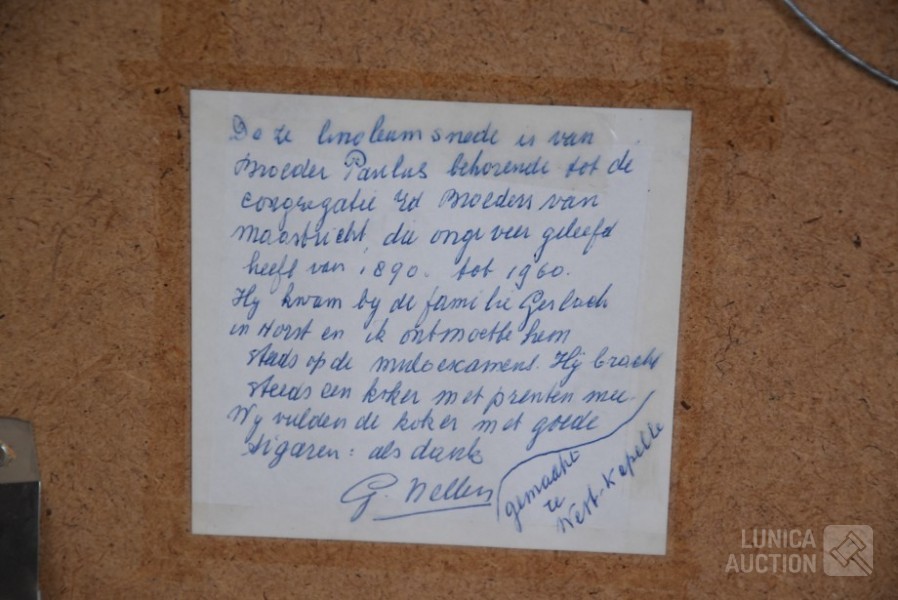 Deze linoleumsnede is van
Broeder Paulus behorende tot de
congregatie Ed Broeders van
Maastricht, die ongeveer geleefd
heeft van 1890. tot 1960.
Hij kwam bij de familie Gerlach
in Horst en ik ontmoette hem
steeds op de muloexamens. Hij bracht
steeds een koker met prenten mee
Wij vulden de koker met goede
sigaren: als dank
G. Nellen
gemaakt
te
West-Kapelle
LUNICA
AUCTION